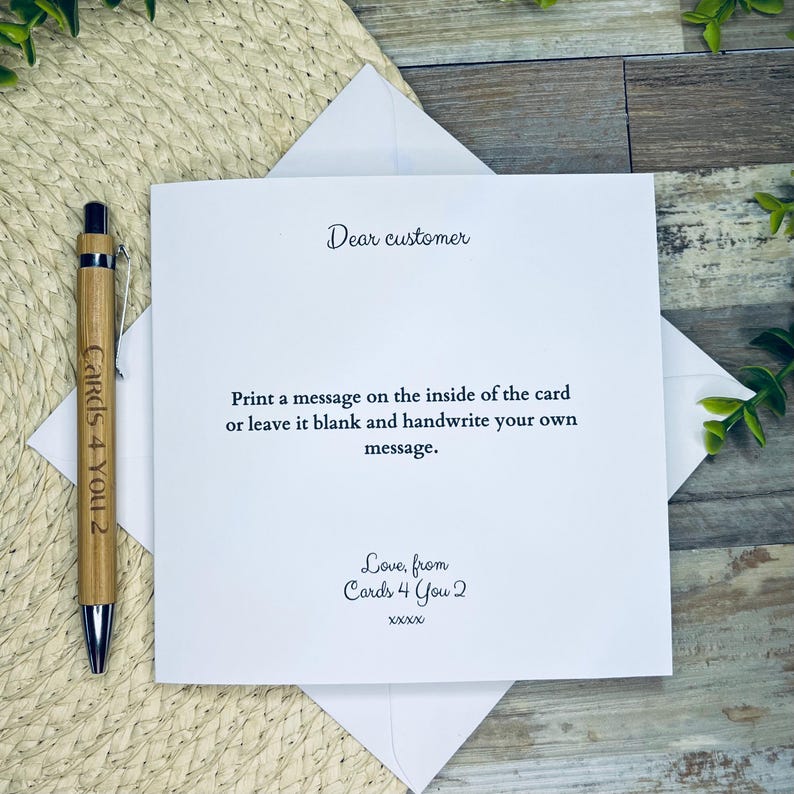 Dear customer
Print a message on the inside of the card
or leave it blank and handwrite your own
message.
Love, from
Cards 4 You 2
xxxx
Cards 4 You 2